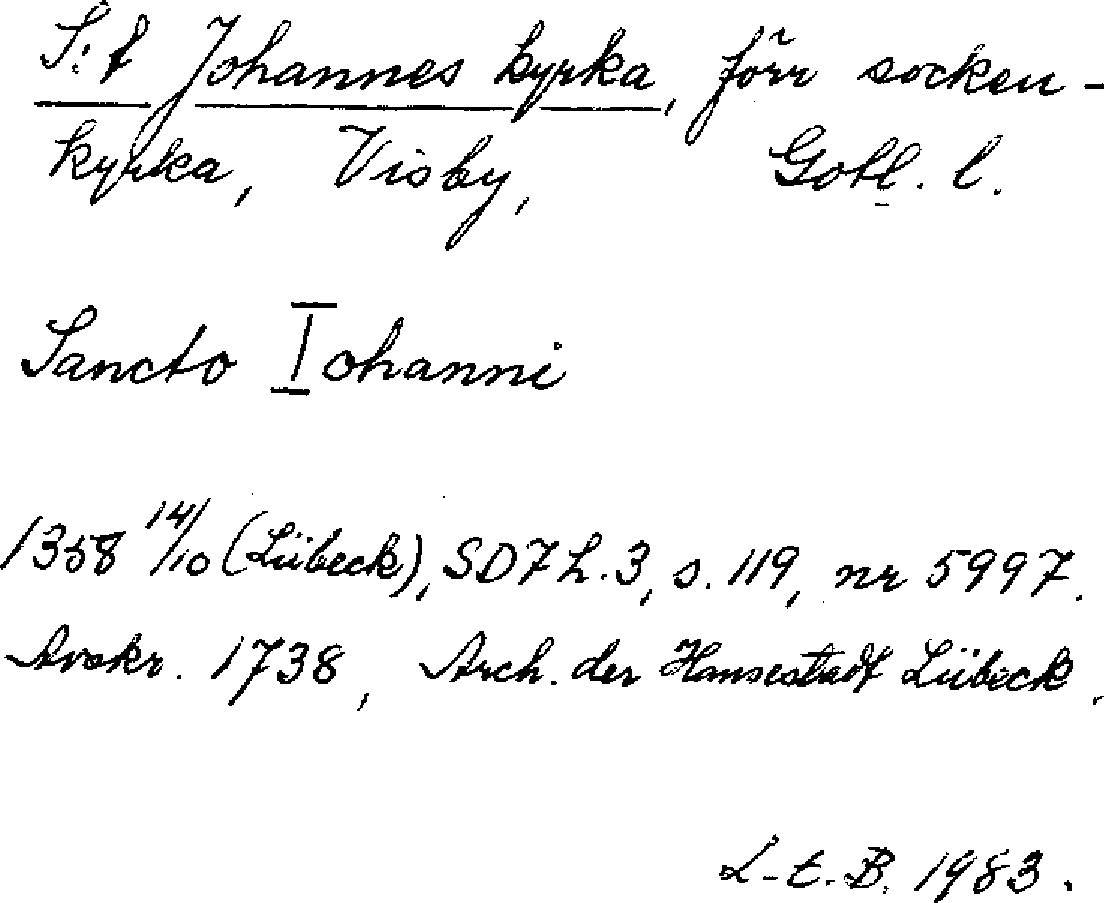 S:t Johannes kyrka, förr socken-
kyrka, Visby, Gotl. l.
Sancto Iohanni
1358 14/10 (Lübeck), SD 7 h. 3, s. 119, nr 5997.
Avskr. 1738, Arch. der Hansestadt Lübeck.
L-t. B. 1983.